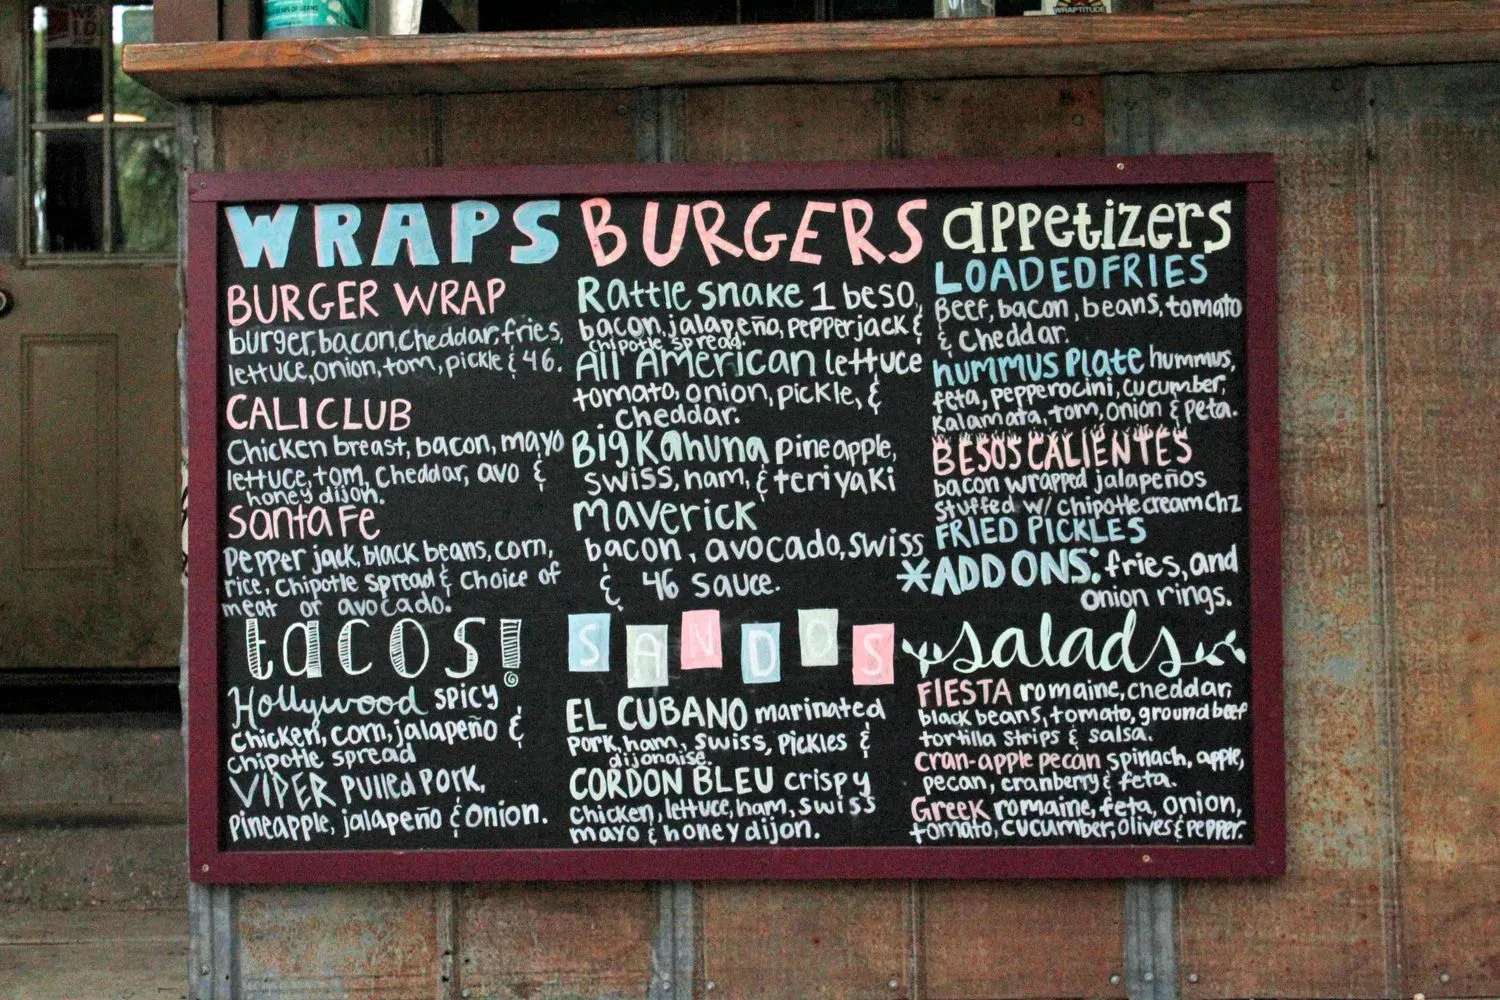 WRAPTITUDE
WRAPS
BURGER WRAP
burger, bacon, cheddar, fries,
lettuce, onion, tom, pickle & 46.
CALI CLUB
Chicken breast, bacon, mayo
lettuce, tom, cheddar, avo &
honey dijon.
Santa Fe
Pepper jack, black beans, corn,
rice, chipotle spread & choice of
meat or avocado.
tacos!
Hollywood spicy
chicken, corn, jalapeño &
chipotle spread
VIPER pulled pork,
pineapple, jalapeño & onion.
BURGERS
Rattle snake 1 beso,
bacon, jalapeño, pepperjack &
chipotle spread.
All American lettuce
tomato, onion, pickle, &
cheddar.
Big Kahuna pineapple,
swiss, ham, & teriyaki
Maverick
bacon, avocado, swiss
& 46 sauce.
SANDOS
EL CUBANO marinated
pork, ham, swiss, pickles &
dijonaise.
CORDON BLEU crispy
chicken, lettuce, ham, swiss
mayo & honey dijon.
appetizers
LOADED FRIES
Beef, bacon, beans, tomato
& cheddar.
hummus Plate hummus,
feta, pepperocini, cucumber,
Kalamata, tom, onion & peta.
BESOS CALIENTES
bacon wrapped jalapeños
stuffed w/ chipotle cream chz
FRIED PICKLES
*ADD ONS: fries, and
onion rings.
salads
FIESTA romaine, cheddar,
black beans, tomato, ground beef
tortilla strips & salsa.
cran-apple pecan spinach, apple,
pecan, cranberry & feta.
Greek romaine, feta, onion,
tomato, cucumber, olives & pepper.